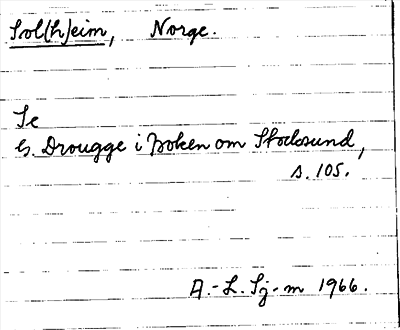 Sol(h)eim, Norge.
Se
G. Drougge i Boken om Stocksund,
s. 105.
A.-L. Sj-m 1966.